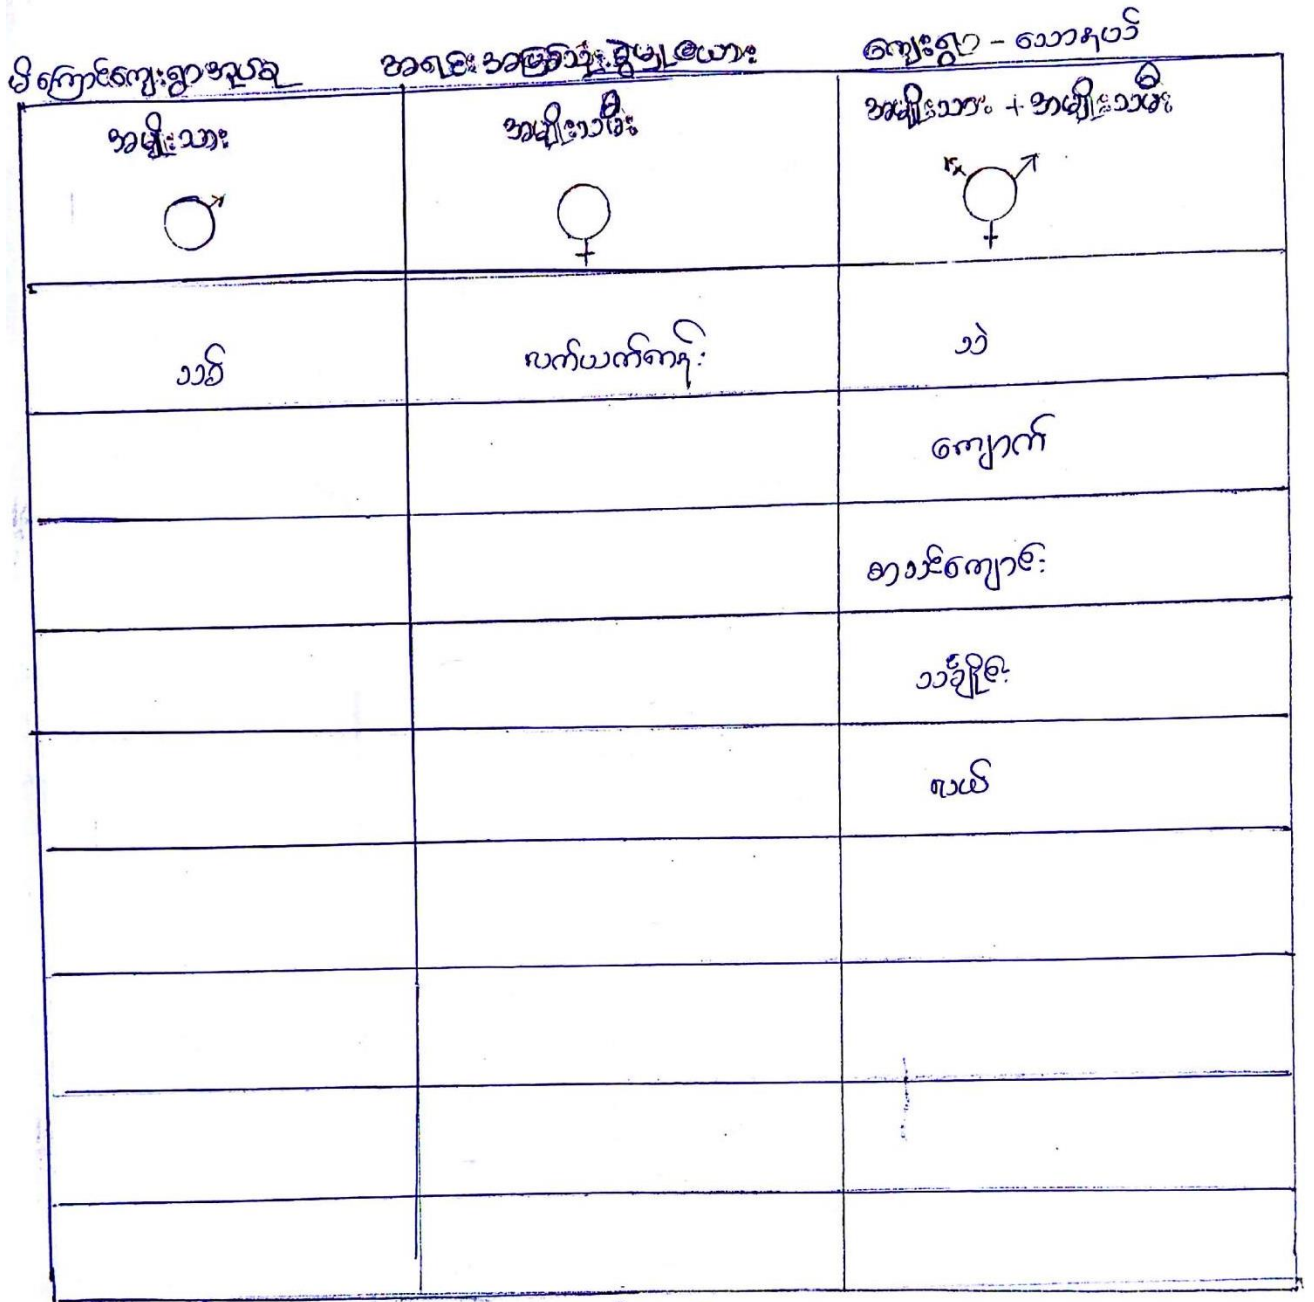 မိကြောင်ကျေးရွာအုပ်စု အရင်းအမြစ်သုံးစွဲမှုဇယား ကျေးရွာ - သောနတင်
အမျိုးသား အမျိုးသမီး အမျိုးသား + အမျိုးသမီး
သစ် လက်ယက်ကန်း သဲ
ကျောက်
စာသင်ကျောင်း
သင်္ချိုင်း
လယ်